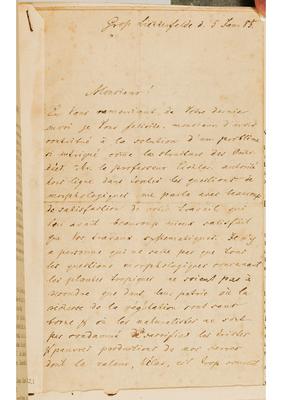 Gross Lichterfelde d. 5 Jan. 85.
Monsieur!
En vous remerciant de Votre dernier
envoi je vous félicite, monsieur d'avoir
contribué à la solution d'un problème
si intrigué comme la structure des
le professeur Eichler, autorité
hors ligne dans toutes les questions de
morphologiques me parla avec beaucoup
de satisfaction de votre travail qui
l'en avait beaucoup mieux satisfait
que les travaux systématiques. Il n'y
a personne qui ne sache pas que tous
les questions morphologiques concernant
les plantes tropiques ne soient pas à
resoudre que dans leur patrie où la
richesse de la végétation sont sans
borne et où les naturalistes ne sont
pas condamné de sacrifier les tristes
et pauvres productions de nos serres
dont la valeur, hélas, est trop souvent